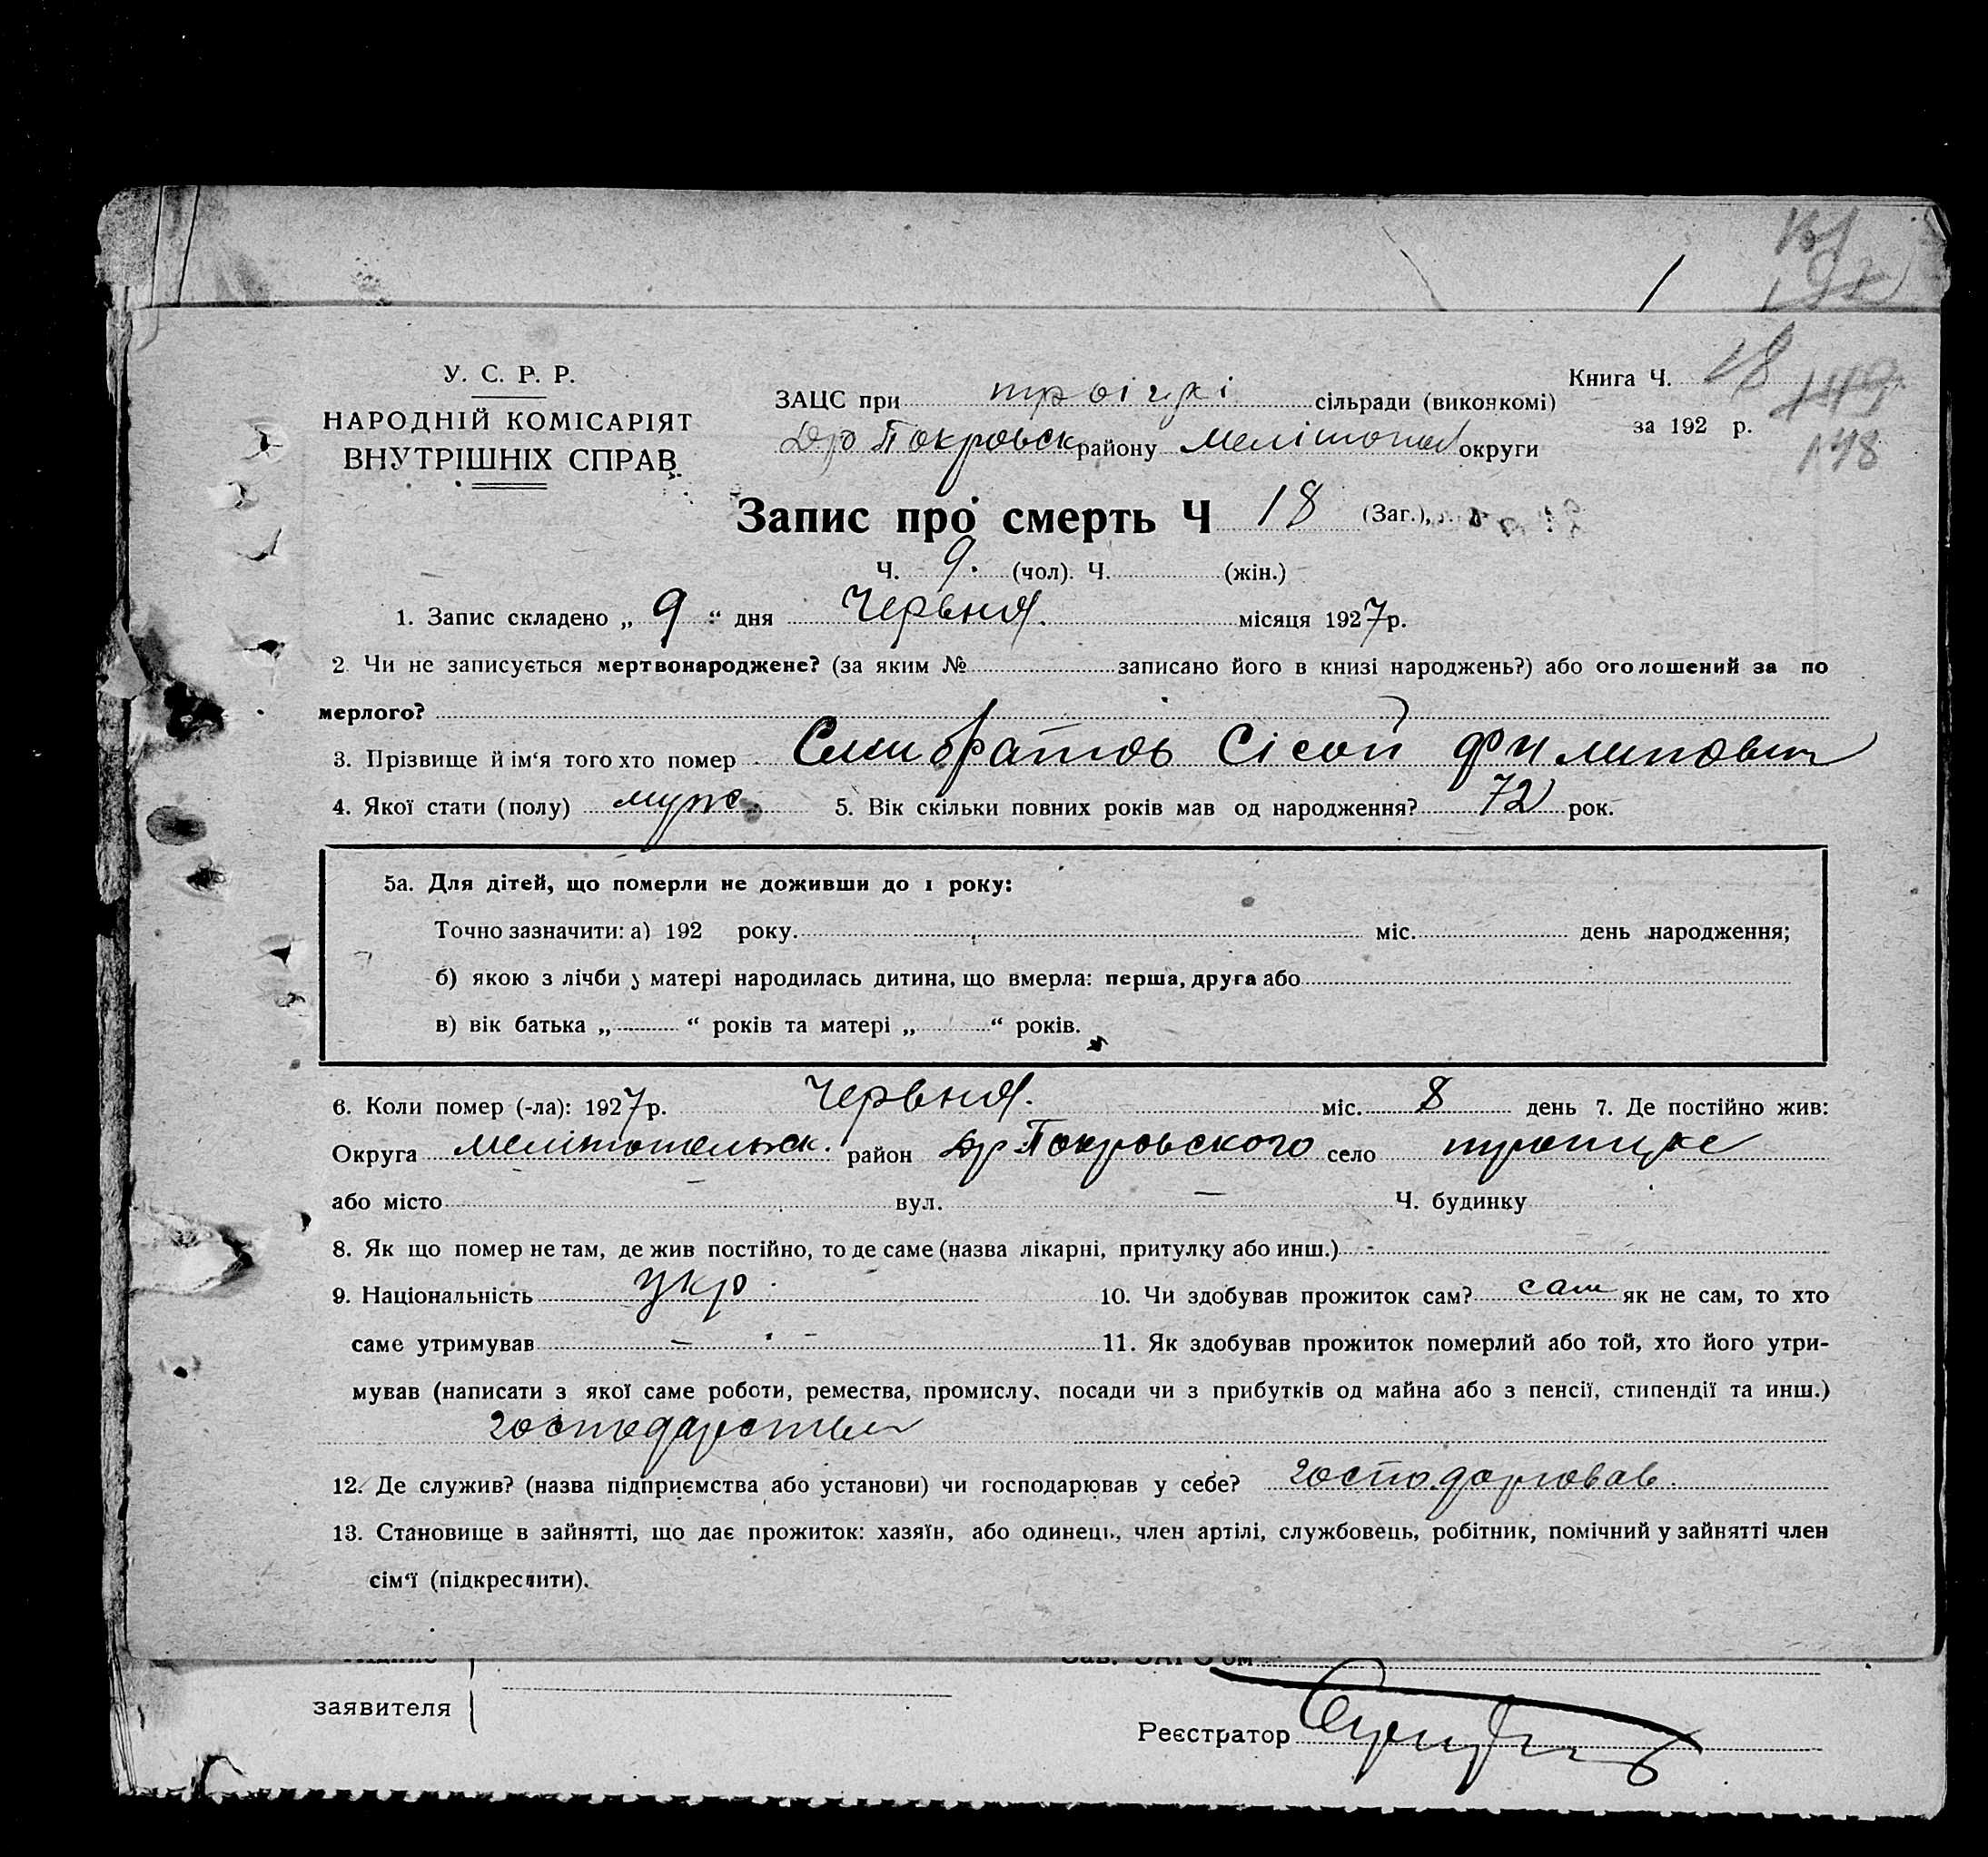 У. С. Р. Р.
НАРОДНІЙ КОМІСАРІЯТ
ВНУТРІШНІХ СПРАВ.
ЗАЦС при троіцкі сільради (виконкомі)
Др Покровск району Мелітопол округи
Книга Ч. 18
за 192 р.
149
148
Запис про смерть Ч 18 (Заг.),
Ч. 9. (чол). Ч. (жін.)
1. Запис складено „ 9 “ дня Червня. місяця 1927 р.
2. Чи не записується мертвонароджене? (за яким № записано його в книзі народжень?) або оголошений за по
мерлого?
3. Прізвище й ім‘я того хто помер Семибратов Сісой Филипович
4. Якої стати (полу) муж. 5. Вік скільки повних років мав од народження? 72 рок.
5а. Для дітей, що померли не доживши до 1 року:
Точно зазначити: а) 192 року. міс. день народження;
б) якою з лічби у матері народилась дитина, що вмерла: перша, друга або
в) вік батька „ “ років та матері „ “ років.
6. Коли помер (-ла): 1927 р. Червня. міс. 8 день 7. Де постійно жив:
Округа Мелітопельск. район Др Покровского село троицке
або місто вул. — Ч. будинку
8. Як що помер не там, де жив постійно, то де саме (назва лікарні, притулку або инш.) -
9. Національність укр. 10. Чи здобував прожиток сам? сам як не сам, то хто
саме утримував — - 11. Як здобував прожиток померлий або той, хто його утри-
мував (написати з якої саме роботи, ремества, промислу, посади чи з прибутків од майна або з пенсії, стипендії та инш.)
господарством
12. Де служив? (назва підприємства або установи) чи господарював у себе? господарював.
13. Становище в зайнятті, що дає прожиток: хазяїн, або одинець, член артілі, службовець, робітник, помічний у зайнятті член
сім‘ї (підкреслити).
заявителя
Реєстратор